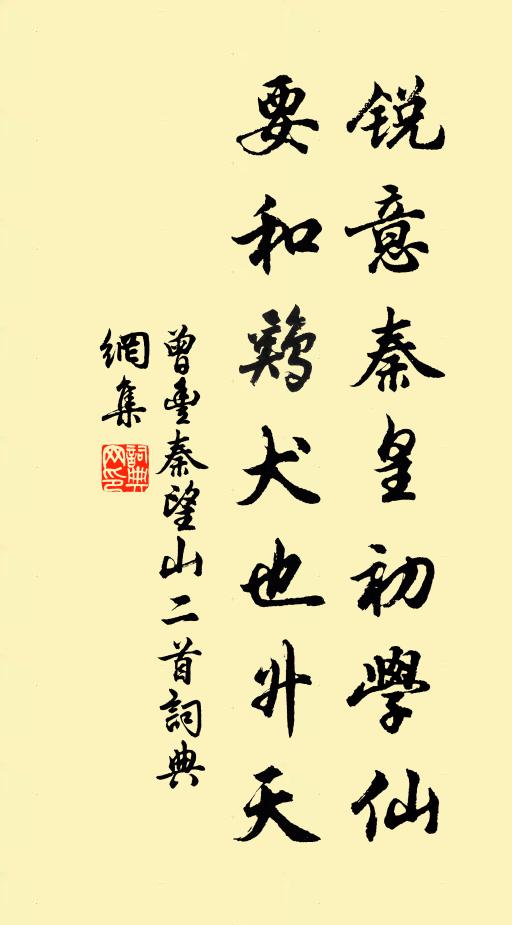 锐意秦皇初學仙
要和鷄犬也升天
曾豐秦望山二首詞典
網集
詞典
网印